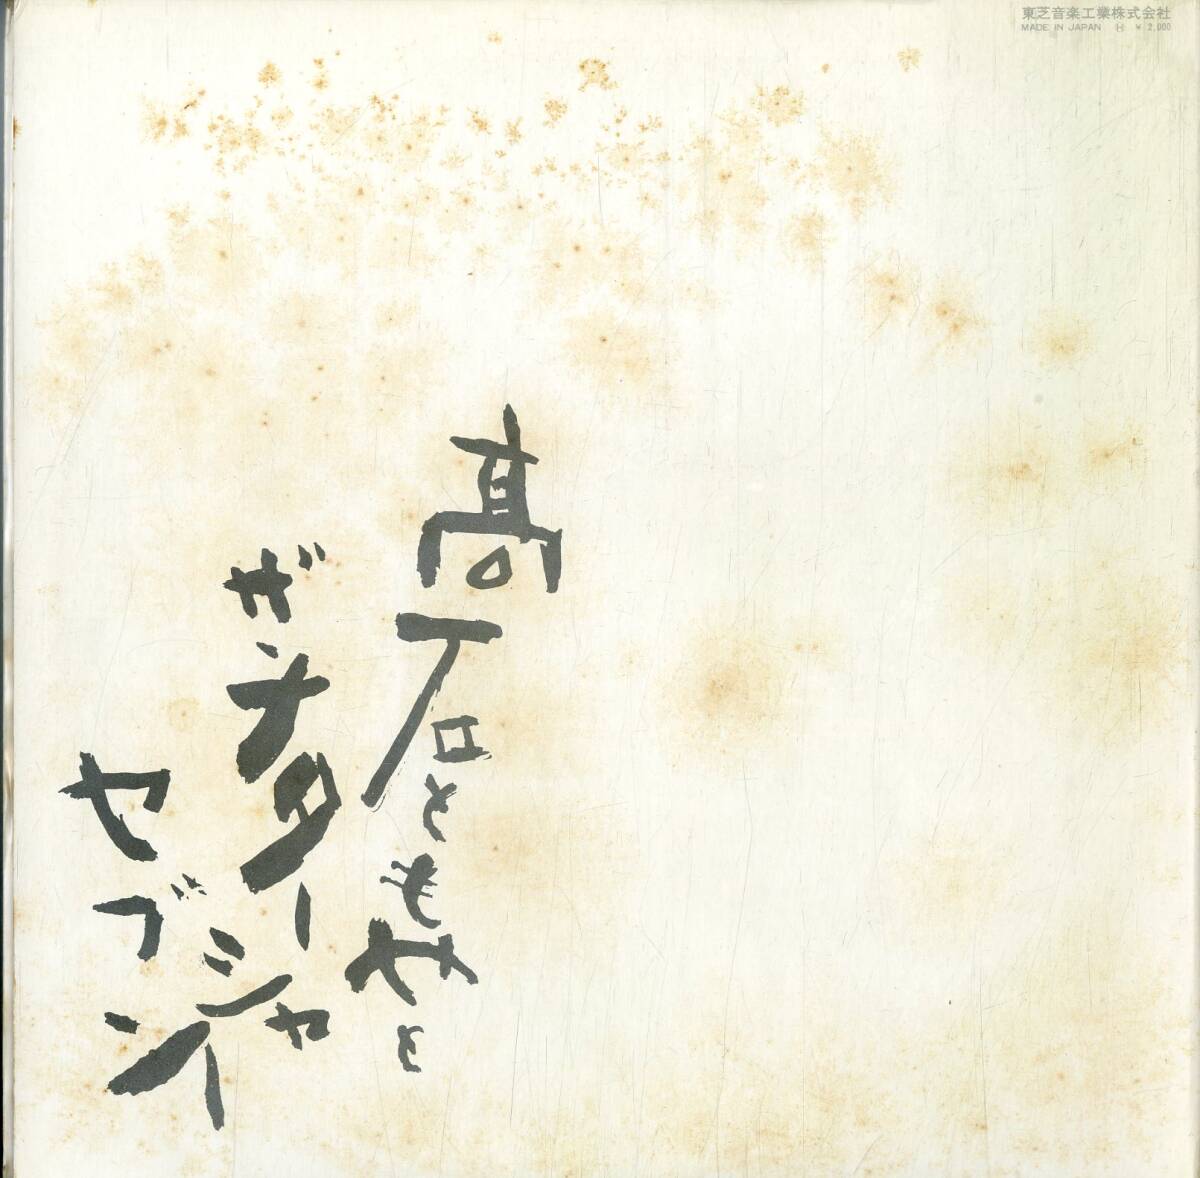 東芝音楽工業株式会社
MADE IN JAPAN Ⓗ ¥ 2,000
高石ともやと
ザ・ナターシャー
セブン